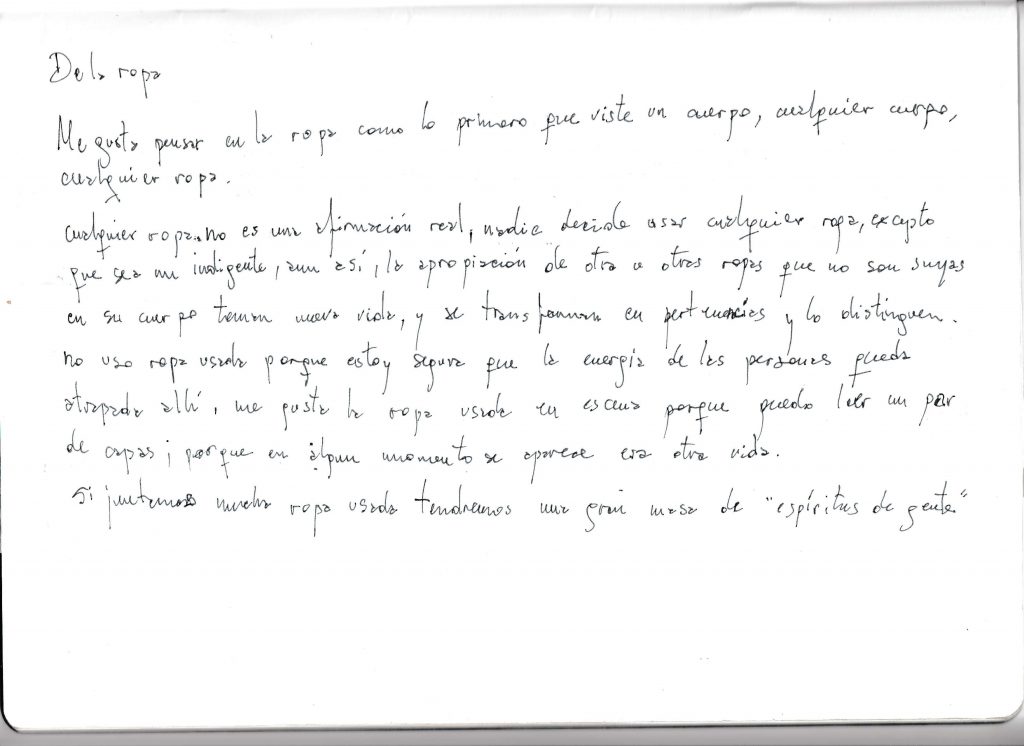 De la ropa
Me gusta pensar en la ropa como lo primero que viste un cuerpo, cualquier cuerpo,
cualquier ropa.
cualquier ropa no es una afirmación real, nadie decide usar cualquier ropa, excepto
que sea un indigente, aun así, la apropiación de otra u otras ropas que no son suyas
en su cuerpo toman nueva vida, y se transforman en pertenencias y lo distinguen.
no uso ropa usada porque estoy segura que la energía de las personas queda
atrapada allí, me gusta la ropa usada en escena porque puedo leer un par
de capas; porque en algun momento se aparece esa otra vida.
Si juntamos mucha ropa usada tendremos una gran masa de "espíritus de gente"